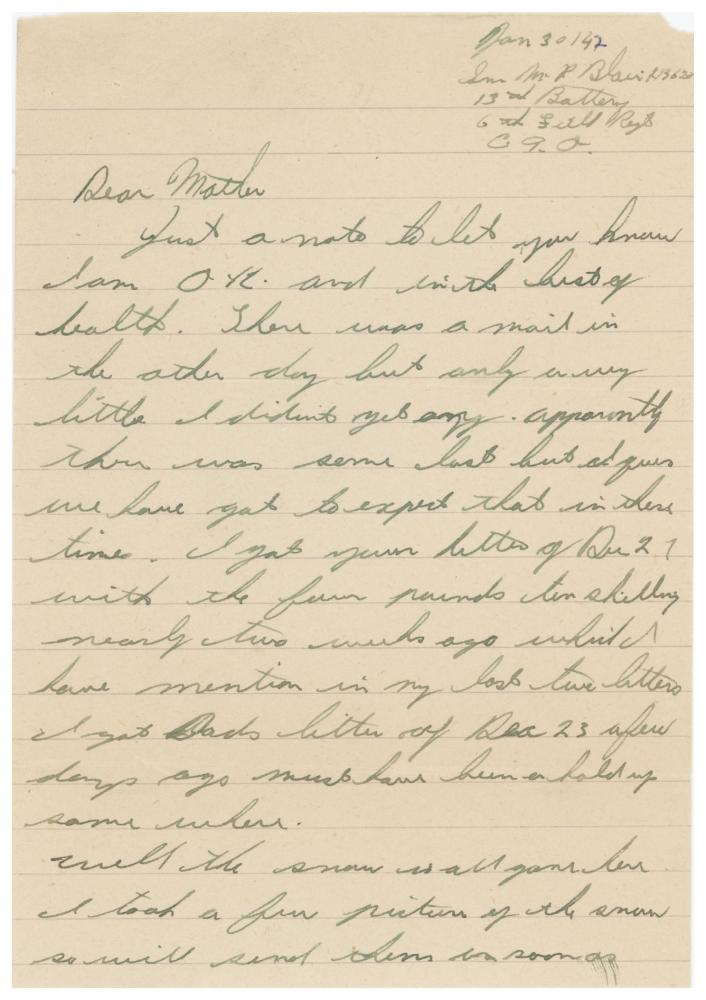 Jan 30/42
Gnr M. R Blair
13th Battery
6th Field Regt
C. A. O.
Dear Mother
Just a note to let you know
I am O.K. and in the best of
health. There was a mail in
the other day but only a very
little I didint get any. apparently
ther was some lost but I guess
we have got to expect that in these
times. I got your letter of Dec 27
with the four pounds ten shilling
nearly two weeks ago which I
have mention in my last two letters
I got Dads letter of Dec 23 a few
days ago must have been a hold up
some where.
Well the snow is all gone here
I took a few pictures of the snow
so will send them as soon as